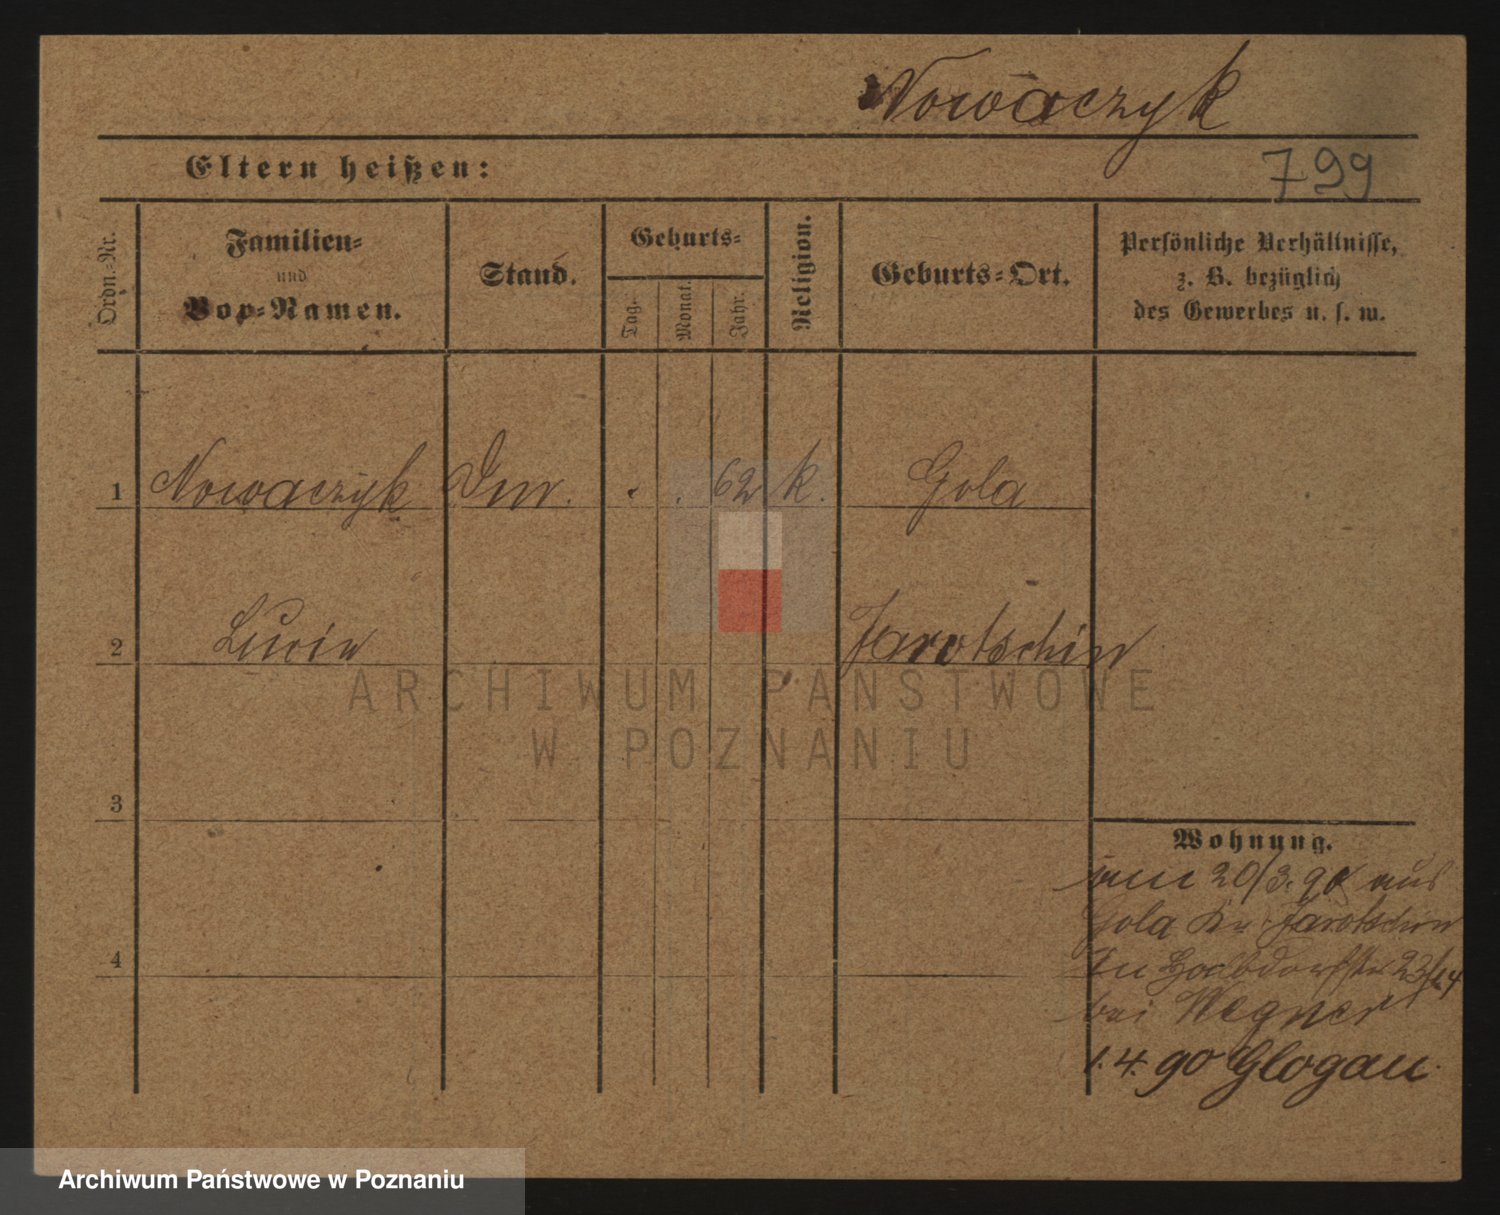 Nowaczyk
Eltern heißen:
799
Ordn.-Nr.
Familien-
und
Vor-Namen.
Stand.
Geburts-
Tag.
Monat.
Jahr.
Religion.
Geburts-Ort.
Persönliche Verhältnisse,
z. B. bezüglich
des Gewerbes u. s. w.
1 Nowaczyk . . 62 k. Gola
2 Jarotschin
3
4
Wohnung.
20/3. 90 aus
Gola Kr. Jarotschin
bei Wegner
1.4.90 Glogau.
ARCHIWUM PAŃSTWOWE
W POZNANIU
Archiwum Państwowe w Poznaniu